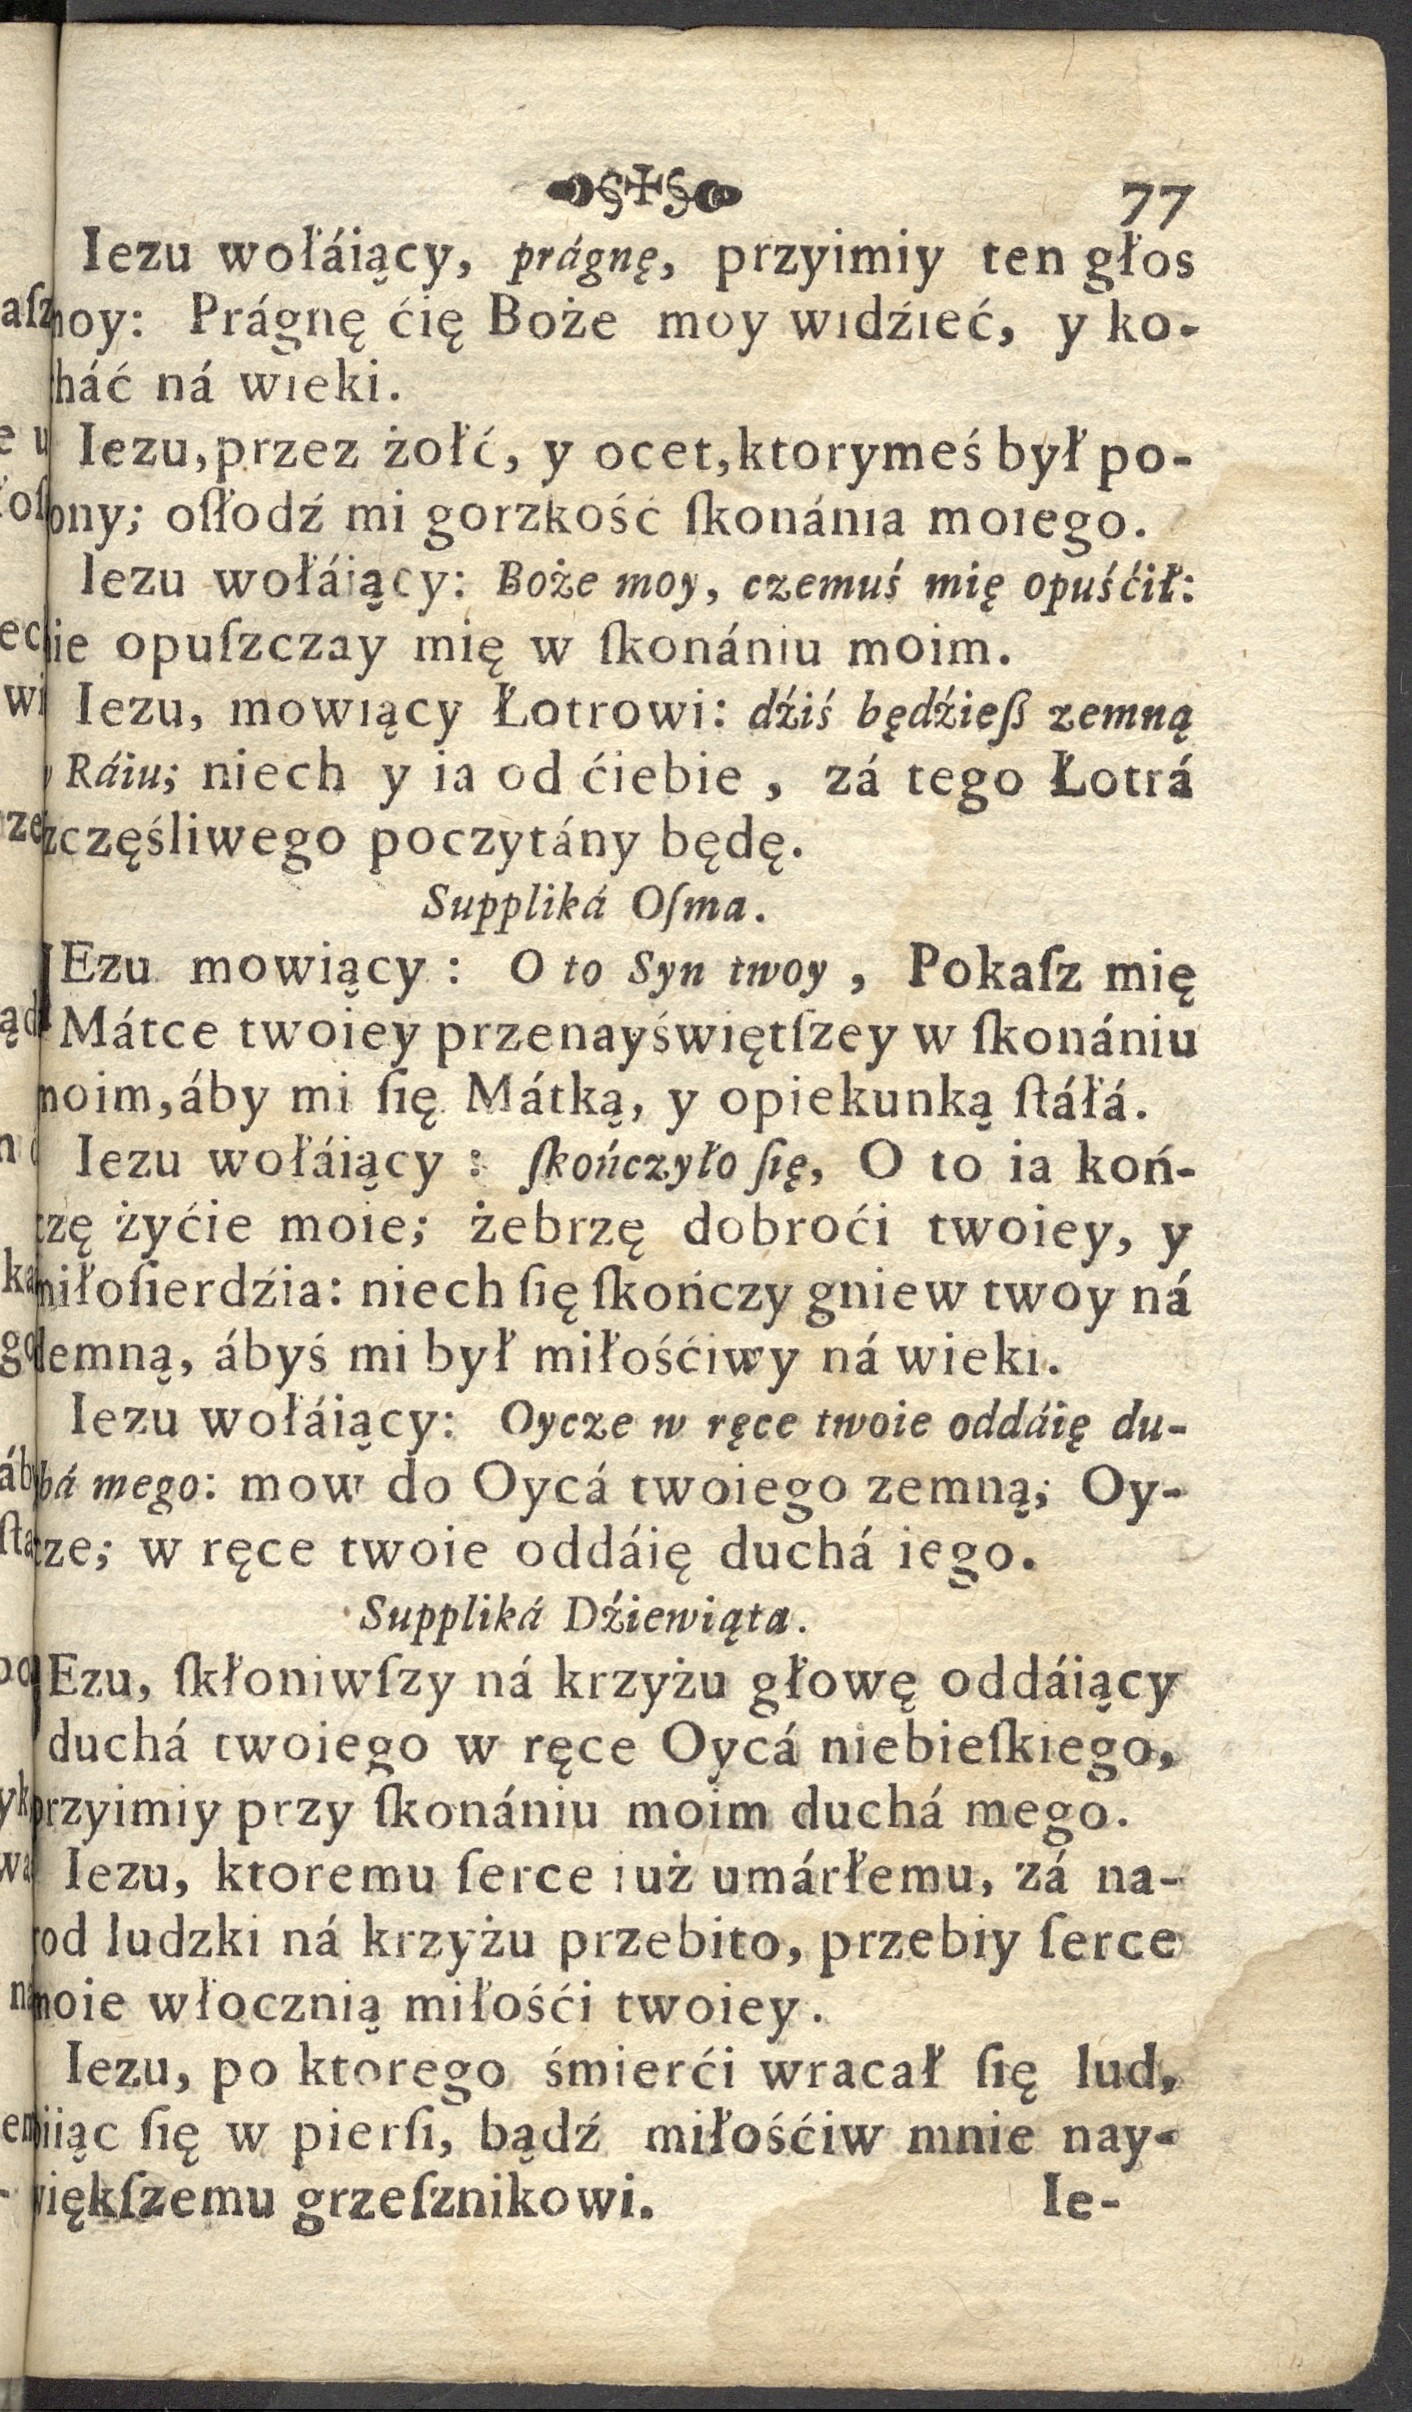 77
Iezu wołáiący, prágnę, przyimiy ten głos
moy: Prágnę ćię Boże moy widźieć, y ko-
cháć ná wieki.
Iezu, przez żołć, y ocet, ktorymeś był po-
iony; oſłodź mi gorzkość ſkonánia moiego.
Iezu wołáiący: Boże moy, czemuś mię opuśćił:
nie opuſzczay mię w ſkonániu moim.
Iezu, mowiący Łotrowi: dźiś będźieß zemną
w Ráiu; niech y ia od ćiebie, zá tego Łotrá
szczęśliwego poczytány będę.
Suppliká Oſma.
IEzu mowiący: O to Syn twoy, Pokaſz mię
Mátce twoiey przenayświętſzey w ſkonániu
moim, áby mi ſię Mátką, y opiekunką ſtáłá.
Iezu wołáiący: ſkończyło ſię, O to ia koń-
czę żyćie moie; żebrzę dobroći twoiey, y
miłoſierdźia: niech ſię ſkończy gniew twoy ná
demną, ábyś mi był miłośćiwy ná wieki.
Iezu wołáiący: Oycze w ręce twoie oddáię du-
chá mego: mow do Oycá twoiego zemną; Oy-
cze; w ręce twoie oddáię duchá iego.
Suppliká Dźiewiąta.
IEzu, ſkłoniwſzy ná krzyżu głowę oddáiący
duchá twoiego w ręce Oycá niebieſkiego,
przyimiy przy ſkonániu moim duchá mego.
Iezu, ktoremu ſerce iuż umárłemu, zá na-
rod ludzki ná krzyżu przebito, przebiy ſerce
moie włocznią miłośći twoiey.
Iezu, po ktorego śmierći wracał ſię lud,
biiąc ſię w pierſi, bądź miłośćiw mnie nay-
więkſzemu grzeſznikowi.
Ie-